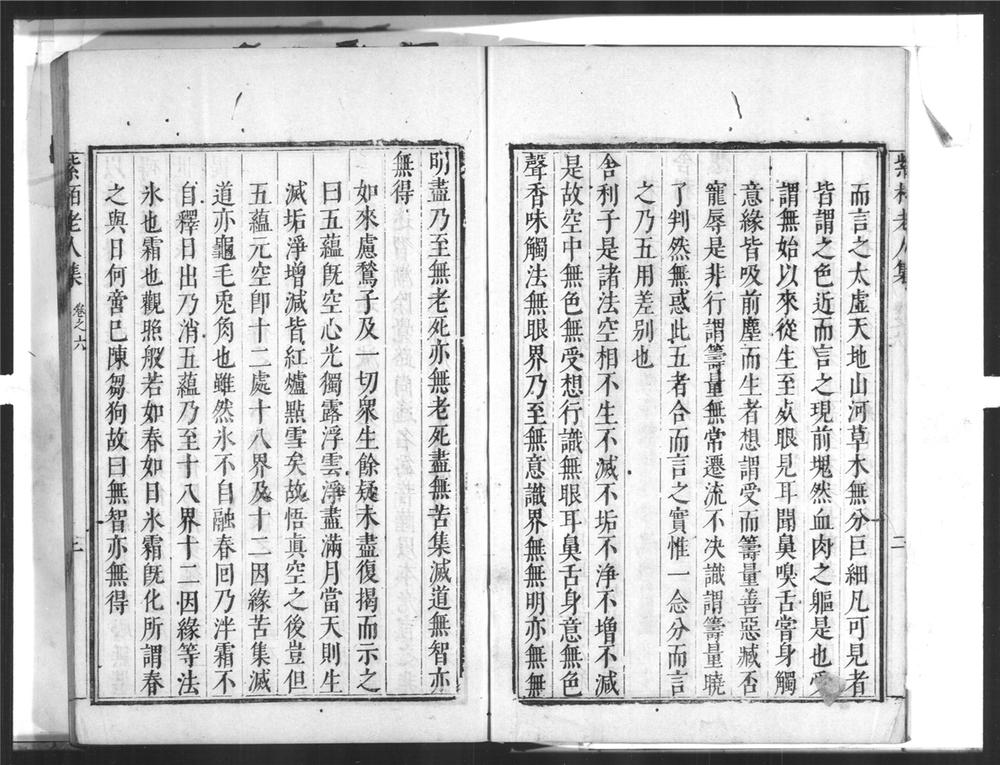 而言之太虛天地山河草木無分巨細凡可見者
皆謂之色近而言之現前塊然血肉之軀是也受
謂無始以來從生至死眼見耳聞鼻嗅舌嘗身觸
意緣皆吸前塵而生者想謂受而籌量善惡臧否
寵辱是非行謂籌量無常遷流不决識謂籌量曉
了判然無惑此五者合而言之實惟一念分而言
之乃五用差別也
舍利子是諸法空相不生不滅不垢不淨不增不減
是故空中無色無受想行識無眼耳鼻舌身意無色
聲香味觸法無眼界乃至無意識界無無明亦無無
明盡乃至無老死亦無老死盡無苦集滅道無智亦
無得
如來慮鶖子及一切眾生餘疑未盡復揭而示之
曰五蘊既空心光獨露浮雲淨盡滿月當天則生
滅垢淨增減皆紅爐點雪矣故悟眞空之後豈但
五蘊元空卽十二處十八界及十二因緣苦集滅
道亦龜毛兎角也雖然氷不自融春回乃泮霜不
自釋日出乃消五蘊乃至十八界十二因緣等法
氷也霜也觀照般若如春如日氷霜旣化所謂春
之與日何啻已陳芻狗故曰無智亦無得
紫栢老人集 卷之六 三
紫栢老人集 二